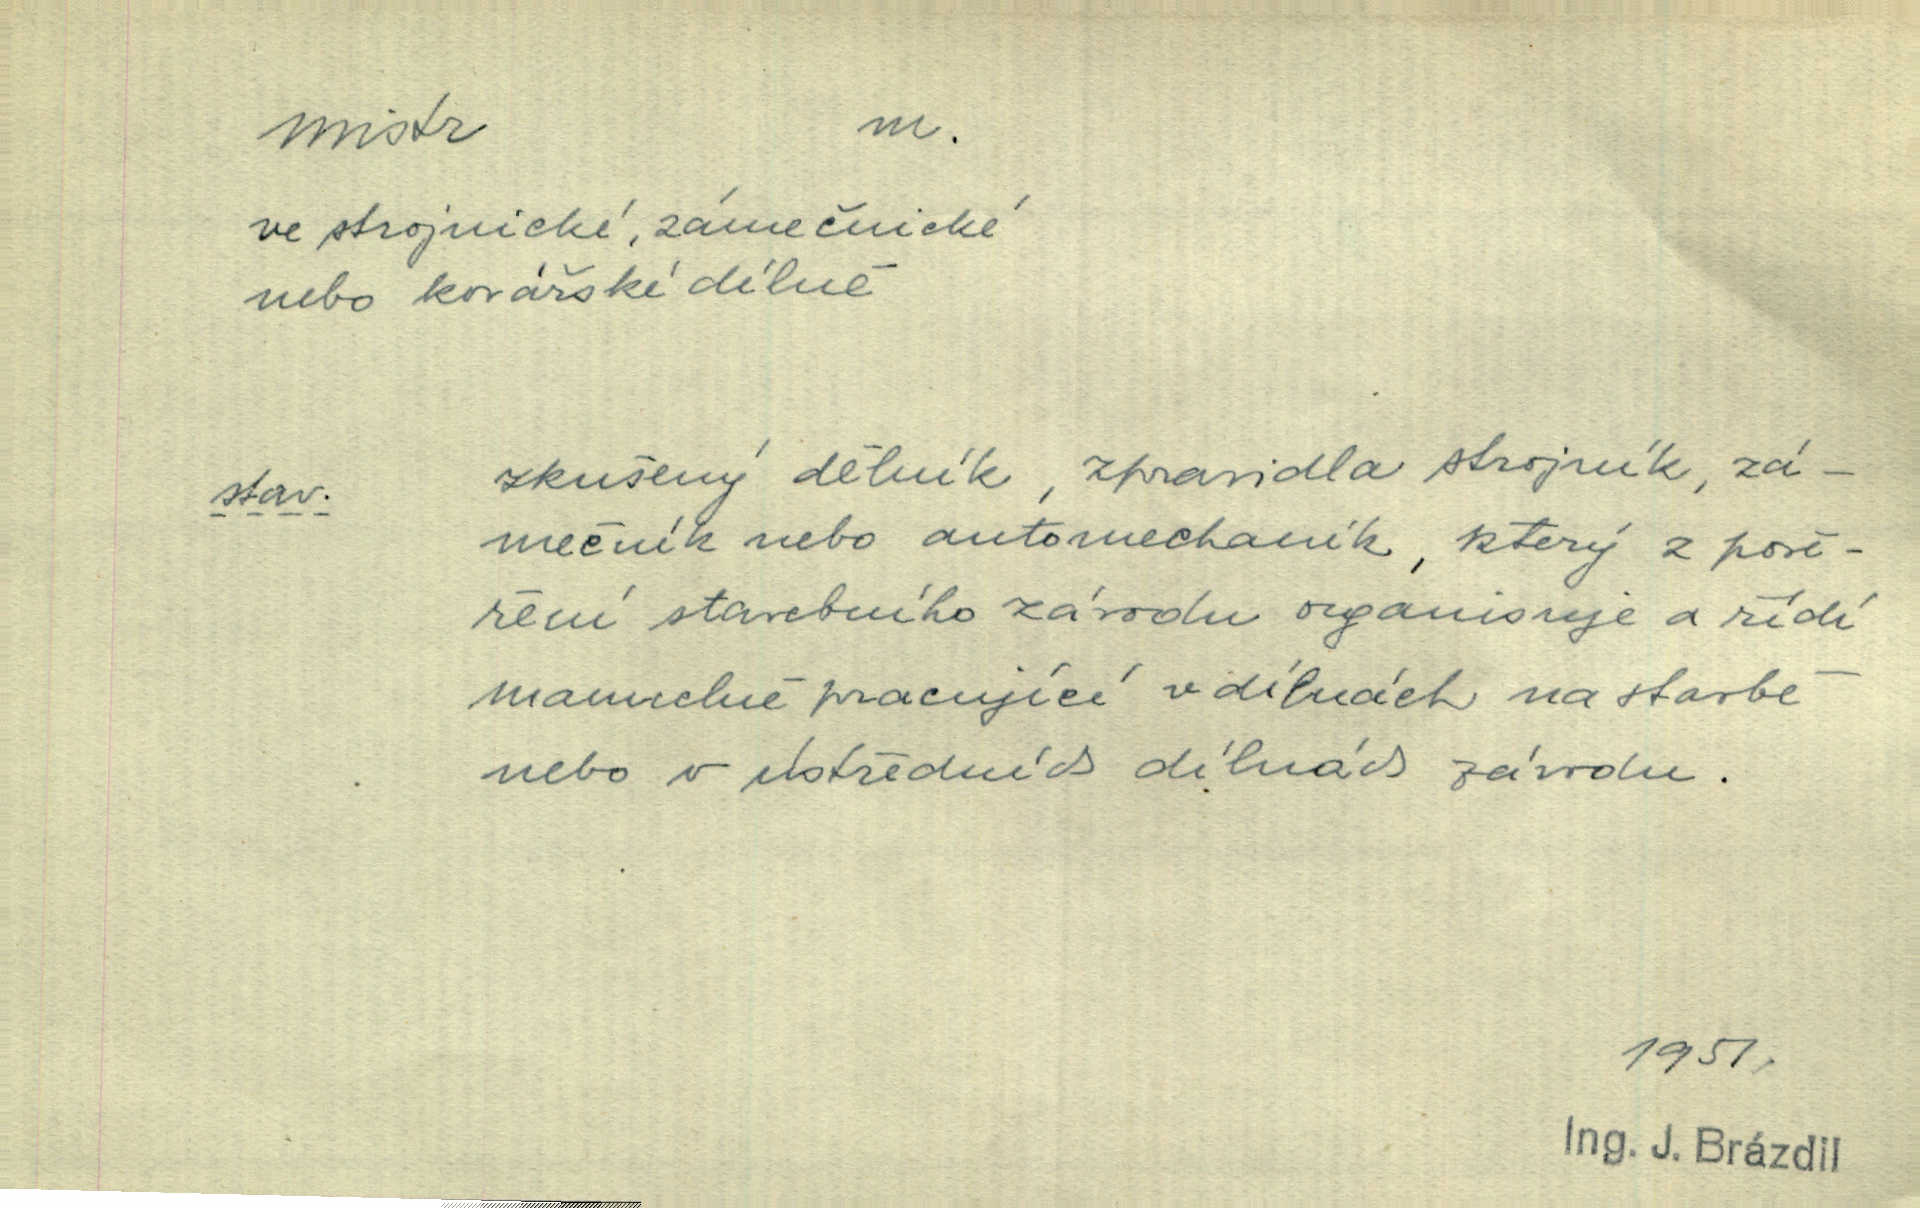 mistr m.
ve strojnické, zámečnické
nebo kovářské dílně
stav. zkušený dělník, zpravidla strojník, zá-
mečník nebo automechanik, který z pově-
ření stavebního závodu organisuje a řídí
manuelně pracující v dílnách na stavbě
nebo v ústředních dílnách závodu.
1951.
Ing. J. Brázdil